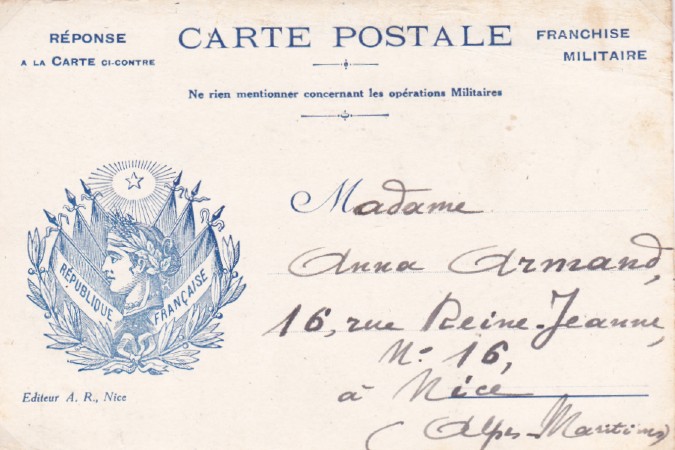 RÉPONSE
A LA CARTE CI-CONTRE
CARTE POSTALE
FRANCHISE
MILITAIRE
Ne rien mentionner concernant les opérations Militaires
RÉPUBLIQUE FRANÇAISE
Madame
Anna Armand,
16, rue Reine-Jeanne,
No 16,
à Nice
(Alpes-Maritimes)
Editeur A. R., Nice